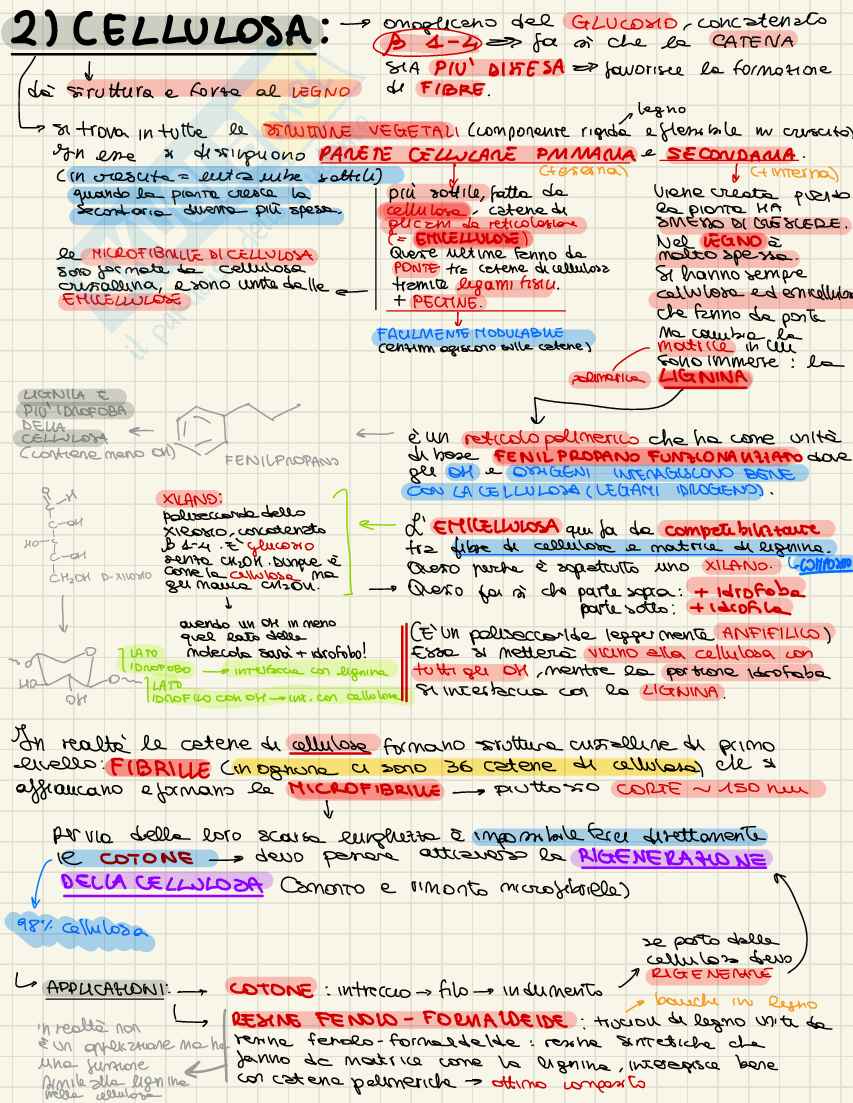 2) CELLULOSA: → omopolimero del GLUCOSIO, concatenato
β 1-4 ⇒ fa sì che la CATENA
SIA PIU' DISTESA ⇒ favorisce la formazione
di FIBRE.
dà struttura e forza al LEGNO
legno
si trova in tutte le STRUTTURE VEGETALI (componente rigida e flessibile in crescita)
In esse si distinguono PARETE CELLULARE PRIMARIA e SECONDARIA.
(+ esterna)
(+ interna)
(in crescita = entrambe sottili)
quando la pianta cresce la
secondaria diventa più spessa.
le MICROFIBRILLE DI CELLULOSA
sono formate da cellulosa
cristallina, e sono unite dalle
EMICELLULOSE
più sottile, fatta da
cellulosa, catene di
glicani da reticolazione
(= EMICELLULOSE)
Queste ultime fanno da
PONTE tra catene di cellulosa
tramite legami fisici.
+ PECTINE.
FACILMENTE MODULABILE
(enzimi agiscono sulle catene)
Viene creata quando
la pianta HA
SMESSO DI CRESCERE.
Nel LEGNO è
molto spessa.
Si hanno sempre
cellulosa ed emicellulosa
che fanno da ponte
ma cambia la
matrice in cui
sono immerse: la
polimerica LIGNINA
LIGNINA È
PIÙ IDROFOBA
DELLA
CELLULOSA
(contiene meno OH)
FENILPROPANO
è un reticolo polimerico che ha come unità
di base FENILPROPANO FUNZIONALIZZATO dove
gli OH e OSSIGENI INTERAGISCONO BENE
CON LA CELLULOSA (LEGAMI IDROGENO).
O H
C-OH
HO-C
C-OH
CH₂OH D-XILOSIO
XILANO:
polisaccaride dello
xilosio, concatenato
β 1-4. È glucosio
senza CH₂OH. Dunque è
come la cellulosa ma
gli manca CH₂OH.
avendo un OH in meno
quel lato della
molecola sarà + idrofobo!
L'EMICELLULOSA qui fa da compatibilizzante
tra fibre di cellulosa e matrice di lignina.
Questo perché è soprattutto uno XILANO.
Questo fa sì che parte sopra: + idrofoba
parte sotto: + idrofila
(È un polisaccaride leggermente ANFIFILICO)
Essa si metterà vicino alla cellulosa con
tutti gli OH, mentre la porzione idrofoba
si interfaccia con la LIGNINA.
O
O
HO
OH
LATO
IDROFOBO → interfaccia con lignina
LATO
IDROFILO CON OH → int. con cellulosa
In realtà le catene di cellulosa formano struttura cristalline di primo
livello: FIBRILLE (in ognuna ci sono 36 catene di cellulosa) che si
affiancano e formano le MICROFIBRILLE → piuttosto CORTE ~ 150 nm
Per via della loro scarsa lunghezza è impossibile farci direttamente
il COTONE → devo passare attraverso la RIGENERAZIONE
DELLA CELLULOSA (smonto e rimonto microfibrille)
98% cellulosa
se parto dalla
cellulosa devo
RIGENERARE
APPLICAZIONI: → COTONE: intreccio → filo → indumento
RESINE FENOLO-FORMALDEIDE: trucioli di legno unite da
resina fenolo-formaldeide: resina sintetiche che
fanno da matrice come la lignina, interagisce bene
con catena polimeriche → ottimo composito
in realtà non
è un'applicazione ma ha
una funzione
simile alla lignina
nella cellulosa